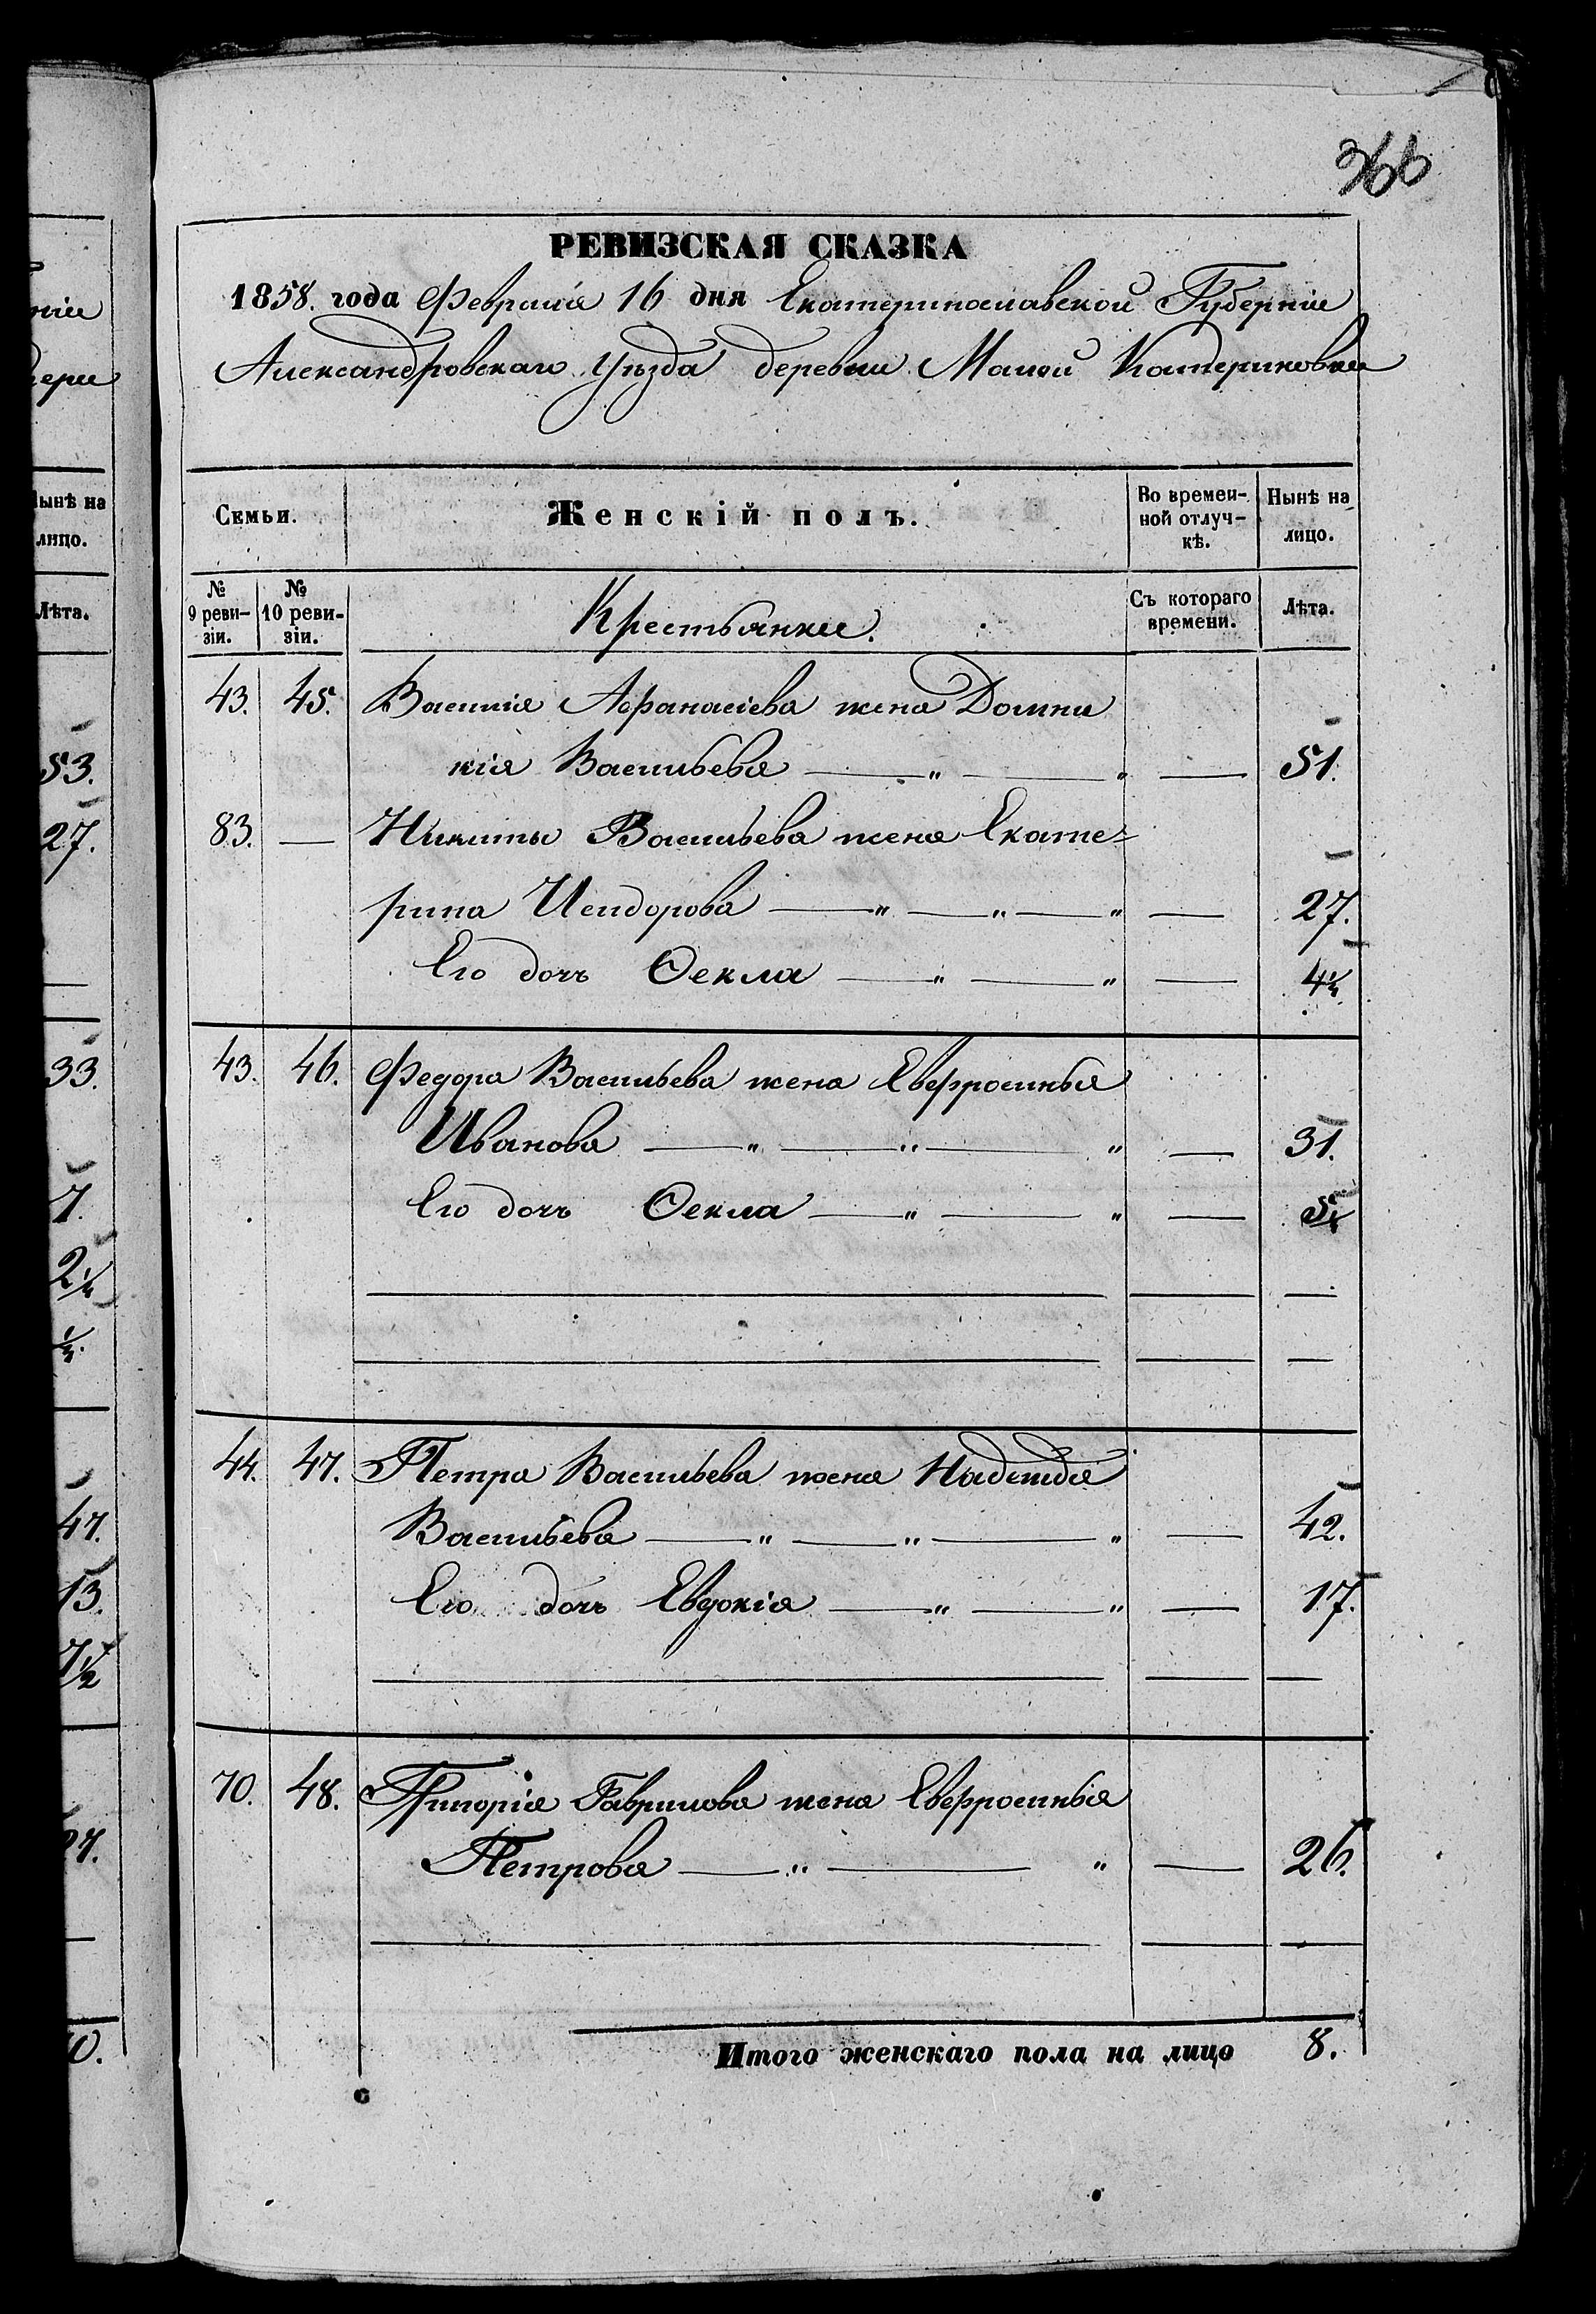 366
РЕВИЗСКАЯ СКАЗКА
1858. года Февраля 16 дня Екатеринославской Губерніи
Александровскаго Уѣзда деревни Малой Катериновки
Семьи.
Женскій полъ.
Во времен-
ной отлуч-
кѣ.
Нынѣ на
лицо.
№
9 реви-
зіи.
№
10 реви-
зіи.
Крестьянки.
Съ котораго
времени.
Лѣта.
43. 45. Василія Афанасіева жена Домни
кія Васильева — „ — „ — 51.
83. — Никиты Васильева жена Екате-
рина Исидорова — „ — „ — „ — 27.
Его дочь Ѳекла — „ — „ — 4½
43. 46. Федора Васильева жена Евфросинья
Иванова — „ — „ — „ — 31.
Его дочь Ѳекла — „ — „ —
44. 47. Петра Васильева жена Надежда
Васильева — „ — „ — „ — 42.
Его дочь Евдокія — „ — „ — 17.
70. 48. Григорія Гаврилова жена Евфросинья
Петрова — „ — „ — 26.
Итого женскаго пола на лицо 8.
ніи
Нынѣ на
лицо.
Лѣта.
53.
27.
33.
7.
2¼
47.
13.
7½